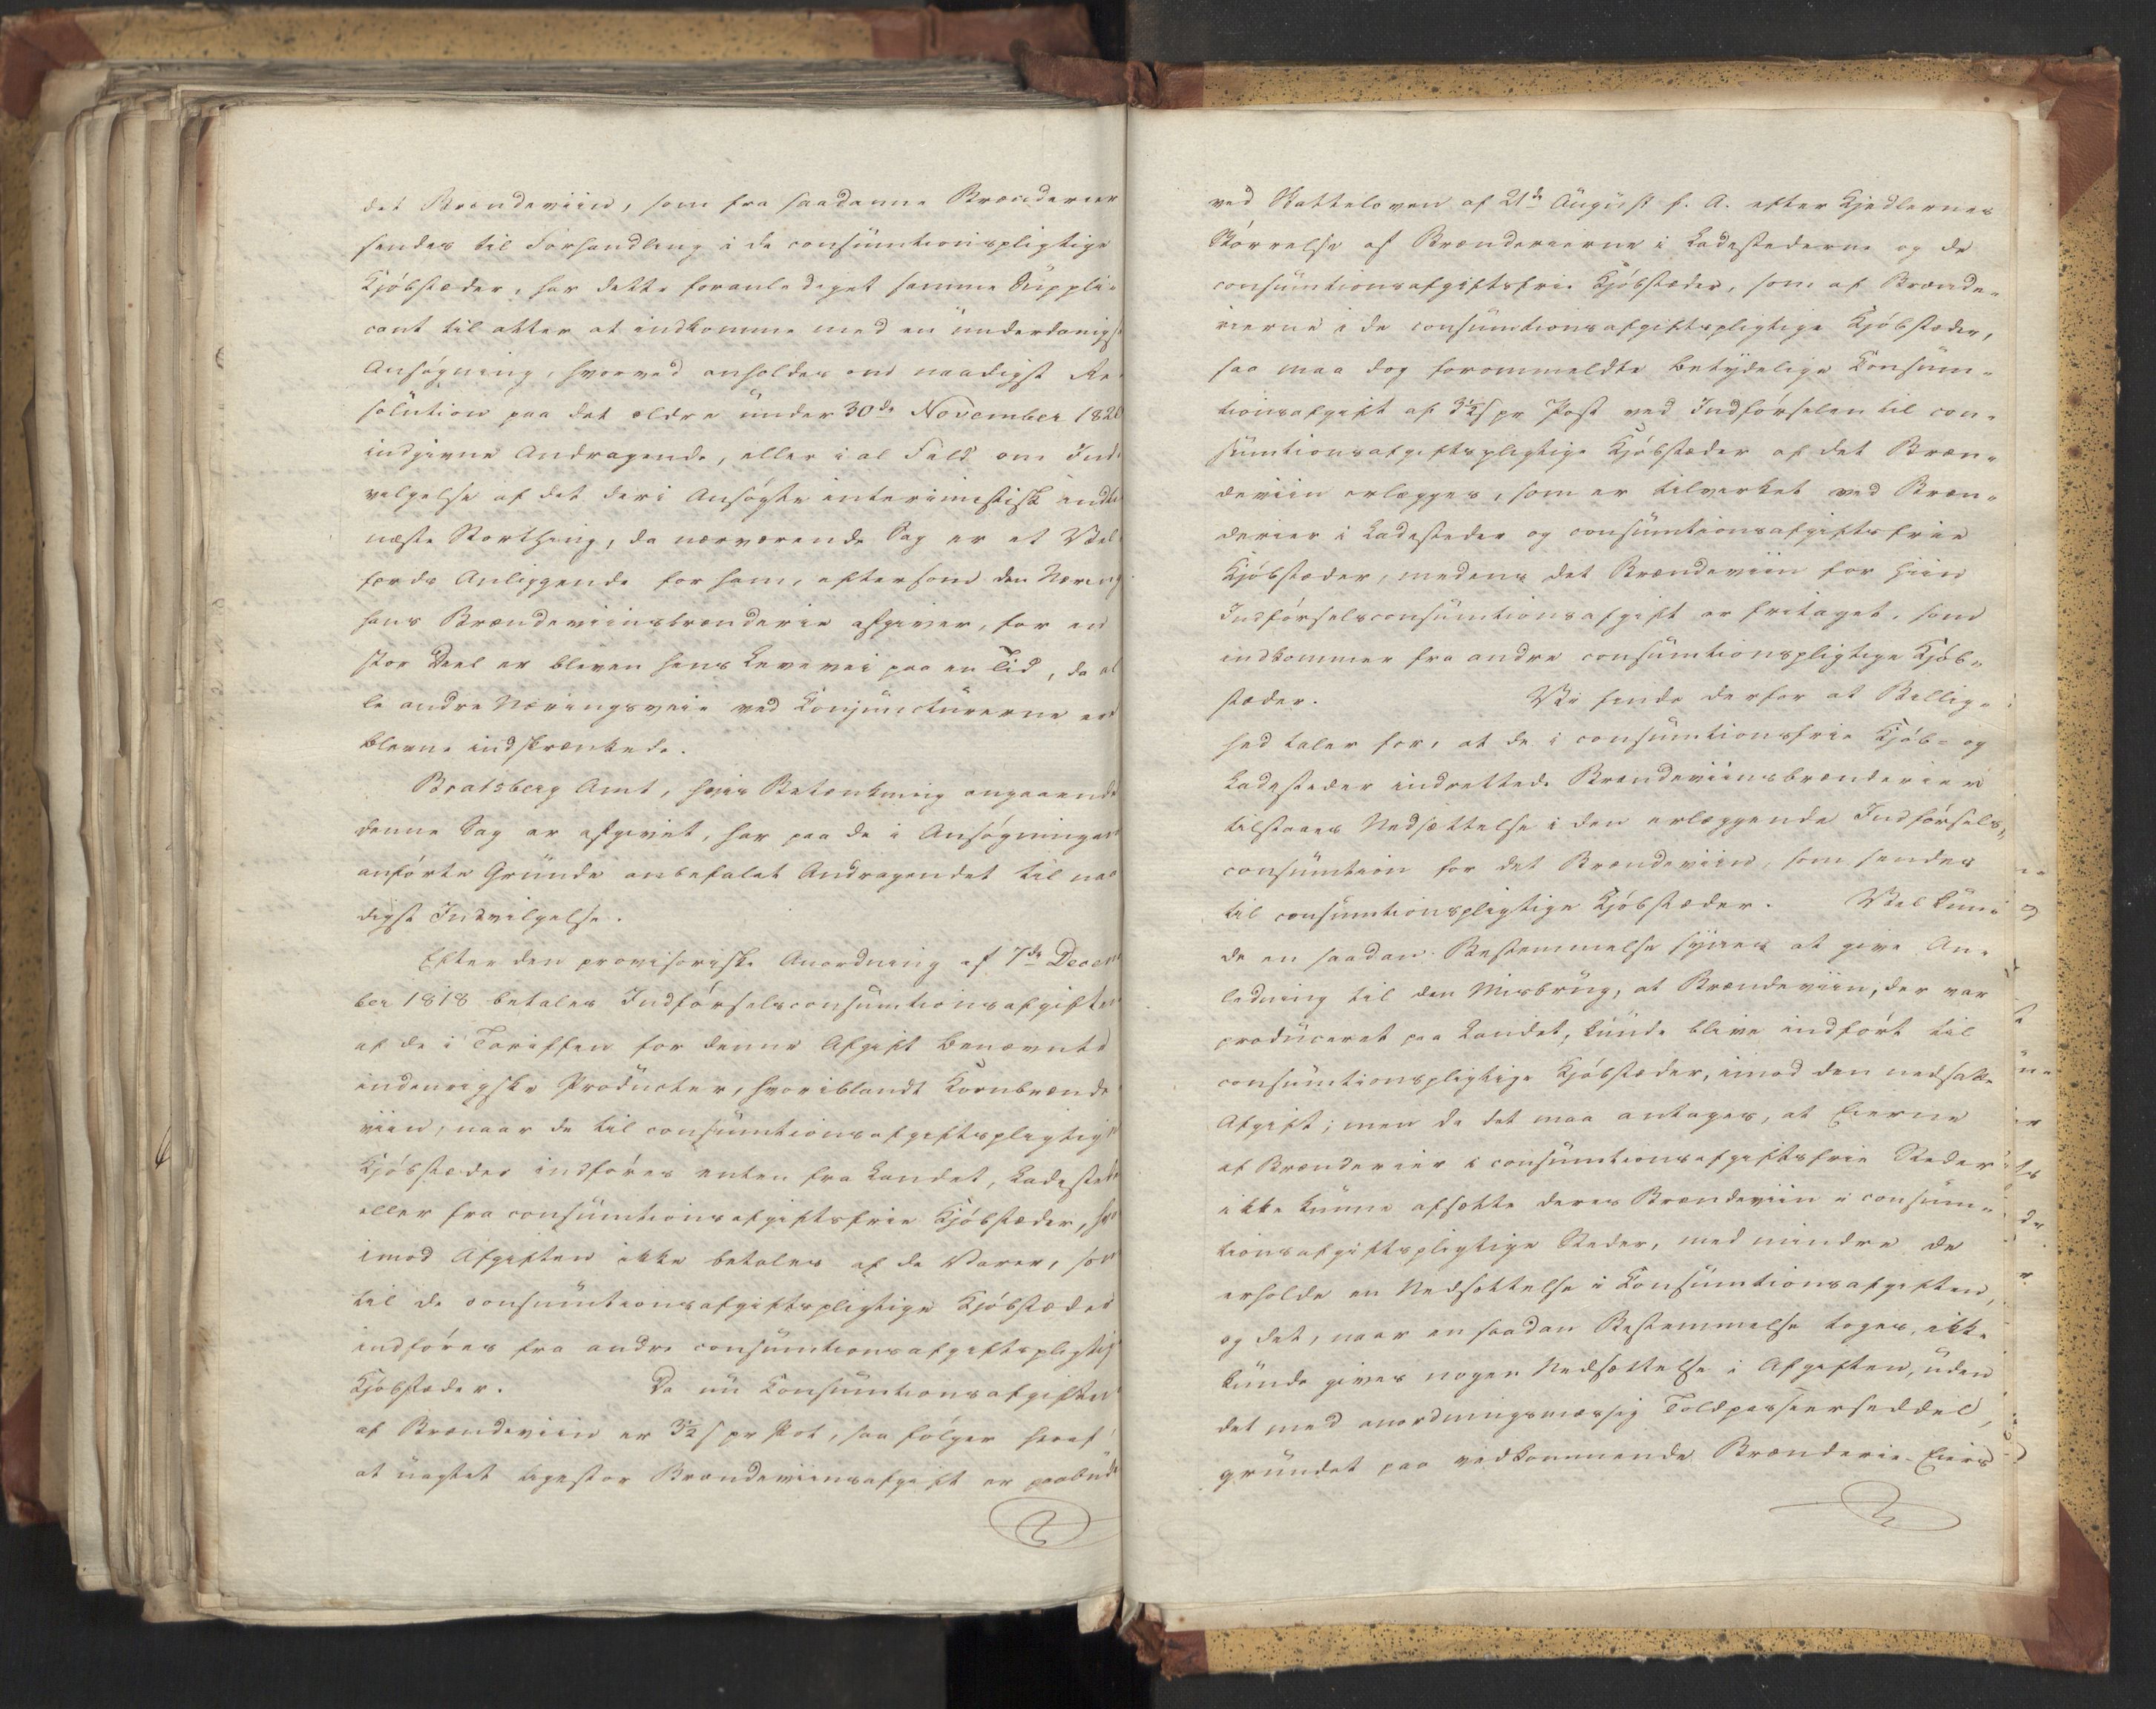 det Brændeviin, som fra saadanne Brænderier
sendes til Forhandling i de consumtionspligtige
Kjøbstæder, har dette foranlediget samme Suppli-
cant til atter at indkomme med en underdanigst
Ansøgning, hvorved anholdes om naadigst Re-
solution paa det ældre under 30de November 1820
indgivne Andragende, eller i al Fald om Ind-
velgelse af det deri Ansøgte interimistisk indtil
næste Storthing, da nærværende Sag er et Vel-
færds Anliggende for ham, eftersom den Næring
hans Brændeviinsbrænderie afgiver, for en
stor Deel er bleven hans Levevei paa en Tid, da al-
le andre Næringsveie ved Conjuncturerne ere
blevne indskrænkede.
Bratsberg Amt, hvis Betænkning angaaende
denne Sag er afgivet, har paa de i Ansøgningen
anførte Grunde anbefalet Andragendet til naa-
digst Indvilgelse.
Efter den provisoriske Anordning af 7de Decem-
ber 1818 betales Indførselsconsumtionsafgiften
af de i Tariffen for denne Afgift benævnte
indenrigske Producter, hvoriblandt Kornbrænde-
viin, naar de til consumtionsafgiftspligtige
Kjøbstæder indføres enten fra Landet, Ladesteder
eller fra consumtionsafgiftsfrie Kjøbstæder, hvor-
imod Afgiften ikke betales af de Varer, som
til de consumtionsafgiftspligtige Kjøbstæder
indføres fra andre consumtionsafgiftspligtige
Kjøbstæder. Da nu Consumtionsafgiften
af Brændeviin er 3½ s pr Pot, saa følger heraf
at uagtet ligestor Brændeviinsafgift er paabudt
ved Skatteloven af 21de August f. A. efter Kjedlernes
Størrelse af Brænderierne i Ladestederne og de
consumtionsafgiftsfrie Kjøbstæder, som af Brænde-
rierne i de consumtionsafgiftspligtige Kjøbstæder,
saa maa dog forommeldte betydelige Consum-
tionsafgift af 3½ s pr Pot ved Indførselen til con-
sumtionsafgiftspligtige Kjøbstæder af det Bræn-
deviin erlægges, som er tilvirket ved Bræn-
derier i Ladesteder og consumtionsafgiftsfrie
Kjøbstæder, medens det Brændeviin for hiin
Indførselsconsumtionsafgift er fritaget, som
indkommer fra andre consumtionspligtige Kjøb-
stæder. Vi finde derfor at Billig-
hed taler for, at de i consumtionsfrie Kjøb- og
Ladesteder indrettede Brændeviinsbrænderier
tilstaaes Nedsættelse i den erlæggende Indførsels-
consumtion for det Brændeviin, som sendes
til consumtionspligtige Kjøbstæder. Vel kun-
de en saadan Bestemmelse synes at give An-
ledning til den Misbrug, at Brændeviin, der var
produceret paa Landet, kunde blive indført til
consumtionspligtige Kjøbstæder, imod den nedsatte
Afgift; men da det maa antages, at Eierne
af Brænderier i consumtionsafgiftsfrie Steder
ikke kunne afsætte deres Brændeviin i consum-
tionsafgiftspligtige Steder, med mindre de
erholde en Nedsættelse i Consumtionsafgiften,
og det, naar en saadan Bestemmelse toges, ikke
kunde gives nogen Nedsættelse i Afgiften, uden
det med anordningsmæssig Toldpasseerseddel,
grundet paa vedkommende Brænderie-Eiers